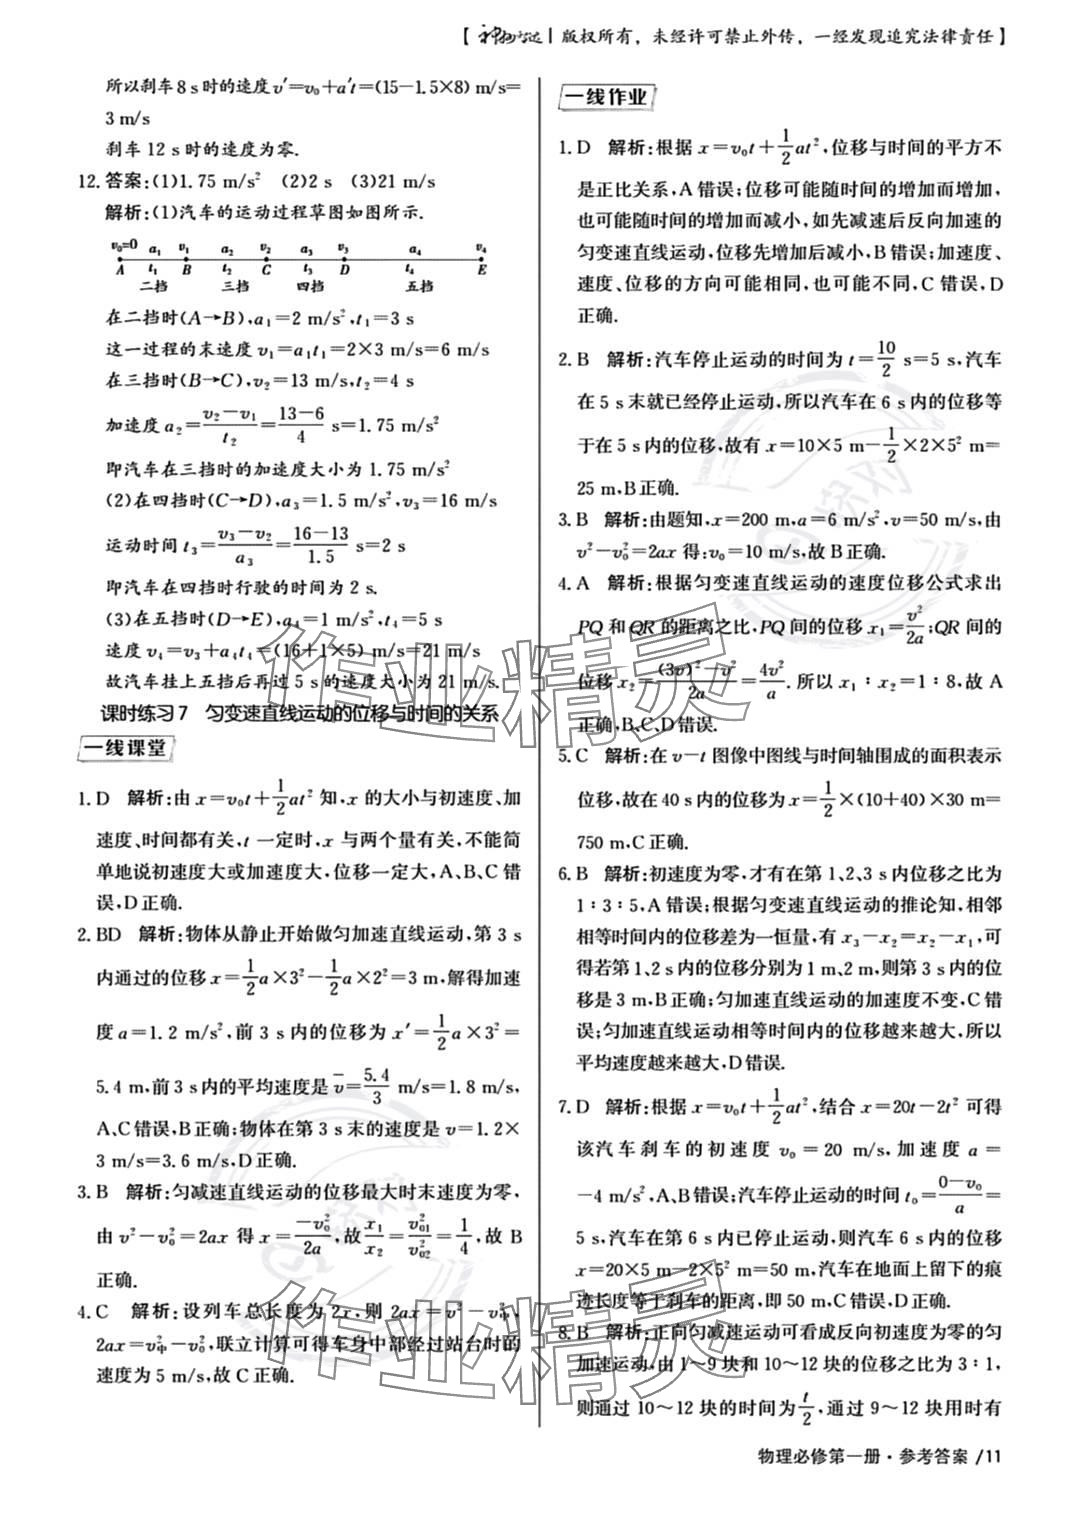 【神州文达| 版权所有，未经许可禁止外传，一经发现追究法律责任】
所以刹车8 s时的速度v′=v₀+a′t=(15-1.5×8) m/s=
3 m/s
刹车12 s时的速度为零.
12. 答案:(1)1.75 m/s² (2)2 s (3)21 m/s
解析:(1)汽车的运动过程草图如图所示.
v₀=0 a₁ v₁ a₂ v₂ a₃ v₃ a₄ v₄
A t₁ B t₂ C t₃ D t₄ E
二挡 三挡 四挡 五挡
在二挡时(A→B),a₁=2 m/s²,t₁=3 s
这一过程的末速度v₁=a₁t₁=2×3 m/s=6 m/s
在三挡时(B→C),v₂=13 m/s,t₂=4 s
加速度a₂=(v₂-v₁)/t₂=(13-6)/4 s=1.75 m/s²
即汽车在三挡时的加速度大小为1.75 m/s²
(2)在四挡时(C→D),a₃=1.5 m/s²,v₃=16 m/s
运动时间t₃=(v₃-v₂)/a₃=(16-13)/1.5 s=2 s
即汽车在四挡时行驶的时间为2 s.
(3)在五挡时(D→E),a₄=1 m/s²,t₄=5 s
速度v₄=v₃+a₄t₄=(16+1×5) m/s=21 m/s
故汽车挂上五挡后再过5 s的速度大小为21 m/s.
课时练习7 匀变速直线运动的位移与时间的关系
一线课堂
1. D 解析:由x=v₀t+1/2at²知,x的大小与初速度、加
速度、时间都有关,t一定时,x与两个量有关,不能简
单地说初速度大或加速度大,位移一定大,A、B、C错
误,D正确.
2. BD 解析:物体从静止开始做匀加速直线运动,第3 s
内通过的位移x=1/2a×3²-1/2a×2²=3 m,解得加速
度a=1.2 m/s²,前3 s内的位移为x′=1/2a×3²=
5.4 m,前3 s内的平均速度是v̄=5.4/3 m/s=1.8 m/s,
A、C错误,B正确;物体在第3 s末的速度是v=1.2×
3 m/s=3.6 m/s,D正确.
3. B 解析:匀减速直线运动的位移最大时末速度为零,
由v²-v₀²=2ax得x=-v₀²/2a,故x₁/x₂=v₀₁²/v₀₂²=1/4,故B
正确.
4. C 解析:设列车总长度为2x,则2ax=v²-v中²,
2ax=v中²-v₀²,联立计算可得车身中部经过站台时的
速度为5 m/s,故C正确.
一线作业
1. D 解析:根据x=v₀t+1/2at²,位移与时间的平方不
是正比关系,A错误;位移可能随时间的增加而增加,
也可能随时间的增加而减小,如先减速后反向加速的
匀变速直线运动,位移先增加后减小,B错误;加速度、
速度、位移的方向可能相同,也可能不同,C错误,D
正确.
2. B 解析:汽车停止运动的时间为t=10/2 s=5 s,汽车
在5 s末就已经停止运动,所以汽车在6 s内的位移等
于在5 s内的位移,故有x=10×5 m-1/2×2×5² m=
25 m,B正确.
3. B 解析:由题知,x=200 m,a=6 m/s²,v=50 m/s,由
v²-v₀²=2ax得:v₀=10 m/s,故B正确.
4. A 解析:根据匀变速直线运动的速度位移公式求出
PQ和QR的距离之比,PQ间的位移x₁=v²/2a;QR间的
位移x₂=((3v)²-v²)/2a=4v²/a.所以x₁∶x₂=1∶8,故A
正确,B、C、D错误.
5. C 解析:在v-t图像中图线与时间轴围成的面积表示
位移,故在40 s内的位移为x=1/2×(10+40)×30 m=
750 m,C正确.
6. B 解析:初速度为零,才有在第1、2、3 s内位移之比为
1∶3∶5,A错误;根据匀变速直线运动的推论知,相邻
相等时间内的位移差为一恒量,有x₃-x₂=x₂-x₁,可
得若第1、2 s内的位移分别为1 m、2 m,则第3 s内的位
移是3 m,B正确;匀加速直线运动的加速度不变,C错
误;匀加速直线运动相等时间内的位移越来越大,所以
平均速度越来越大,D错误.
7. D 解析:根据x=v₀t+1/2at²,结合x=20t-2t²可得
该汽车刹车的初速度v₀=20 m/s,加速度a=
-4 m/s²,A、B错误;汽车停止运动的时间t₀=(0-v₀)/a=
5 s,汽车在第6 s内已停止运动,则汽车6 s内的位移
x=20×5 m-2×5² m=50 m,汽车在地面上留下的痕
迹长度等于刹车的距离,即50 m,C错误,D正确.
8. B 解析:正向匀减速运动可看成反向初速度为零的匀
加速运动,由1～9块和10～12块的位移之比为3∶1,
则通过10～12块的时间为t/2,通过9～12块用时有
物理必修第一册·参考答案 /11
作业精灵
作业精灵